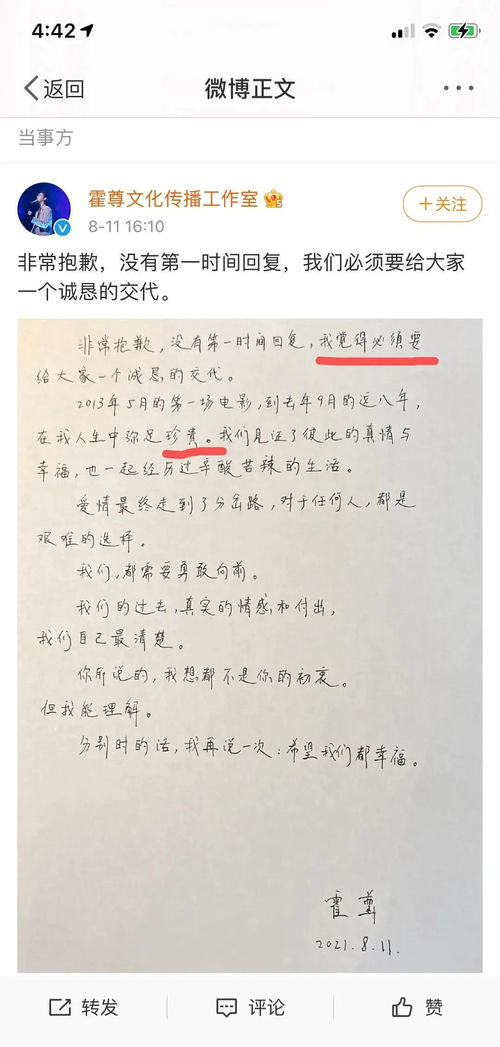 4:42
返回
微博正文
当事方
霍尊文化传播工作室
8-11 16:10
+关注
非常抱歉，没有第一时间回复，我们必须要给大家
一个诚恳的交代。
非常抱歉，没有第一时间回复，我觉得必须要
给大家一个诚恳的交代。
2013年5月的第一场电影，到去年9月的这八年，
在我人生中弥足珍贵。我们见证了彼此的真情与
幸福，也一起经历过辛酸苦辣的生活。
爱情最终走到了分岔路，对于任何人，都是
艰难的选择。
我们，都需要勇敢向前。
我们的过去，真实的情感和付出，
我们自己最清楚。
你所说的，我想都不是你的初衷。
但我能理解。
分别时的话，我再说一次：希望我们都幸福。
霍尊
2021.8.11.
转发
评论
赞